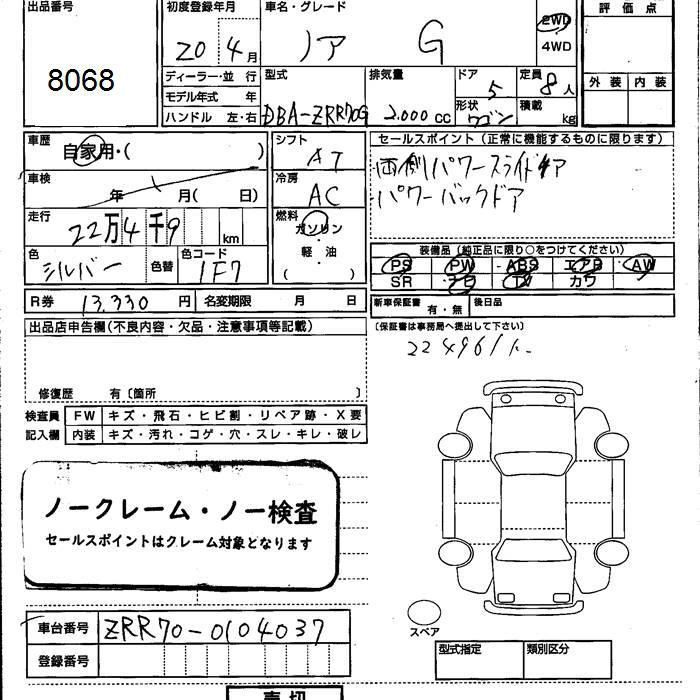 出品番号
8068
初度登録年月
20 4月
車名・グレード
ノア G
2WD
4WD
評価点
外装 内装
ディーラー・並行
モデル年式 年
ハンドル 左・右
型式
DBA-ZRR70G
排気量
2.000 cc
ドア
5
形状
ワゴン
定員
8人
積載
kg
車歴
自家用・( )
車検
年 月( 日)
走行
22万4千9 km
色
シルバー
色替
色コード
1F7
シフト
AT
冷房
AC
燃料
ガソリン
軽・油
( )
セールスポイント(正常に機能するものに限ります)
両側パワースライドドア
パワーバックドア
装備品(純正品に限り○をつけてください)
PS PW ABS エアB AW
SR ナビ TV カワ
R券 13,330 円
名変期限 月 日
新車保証書 有・無
後日品
(保証書は事務局へ提出して下さい)
出品店申告欄(不良内容・欠品・注意事項等記載)
修復歴 有〔箇所 〕
検査員 FW キズ・飛石・ヒビ割・リペア跡・X要
記入欄 内装 キズ・汚れ・コゲ・穴・スレ・キレ・破レ
ノークレーム・ノー検査
セールスポイントはクレーム対象となります
車台番号 ZRR70-0104037
登録番号
スペア
型式指定 類別区分
売切